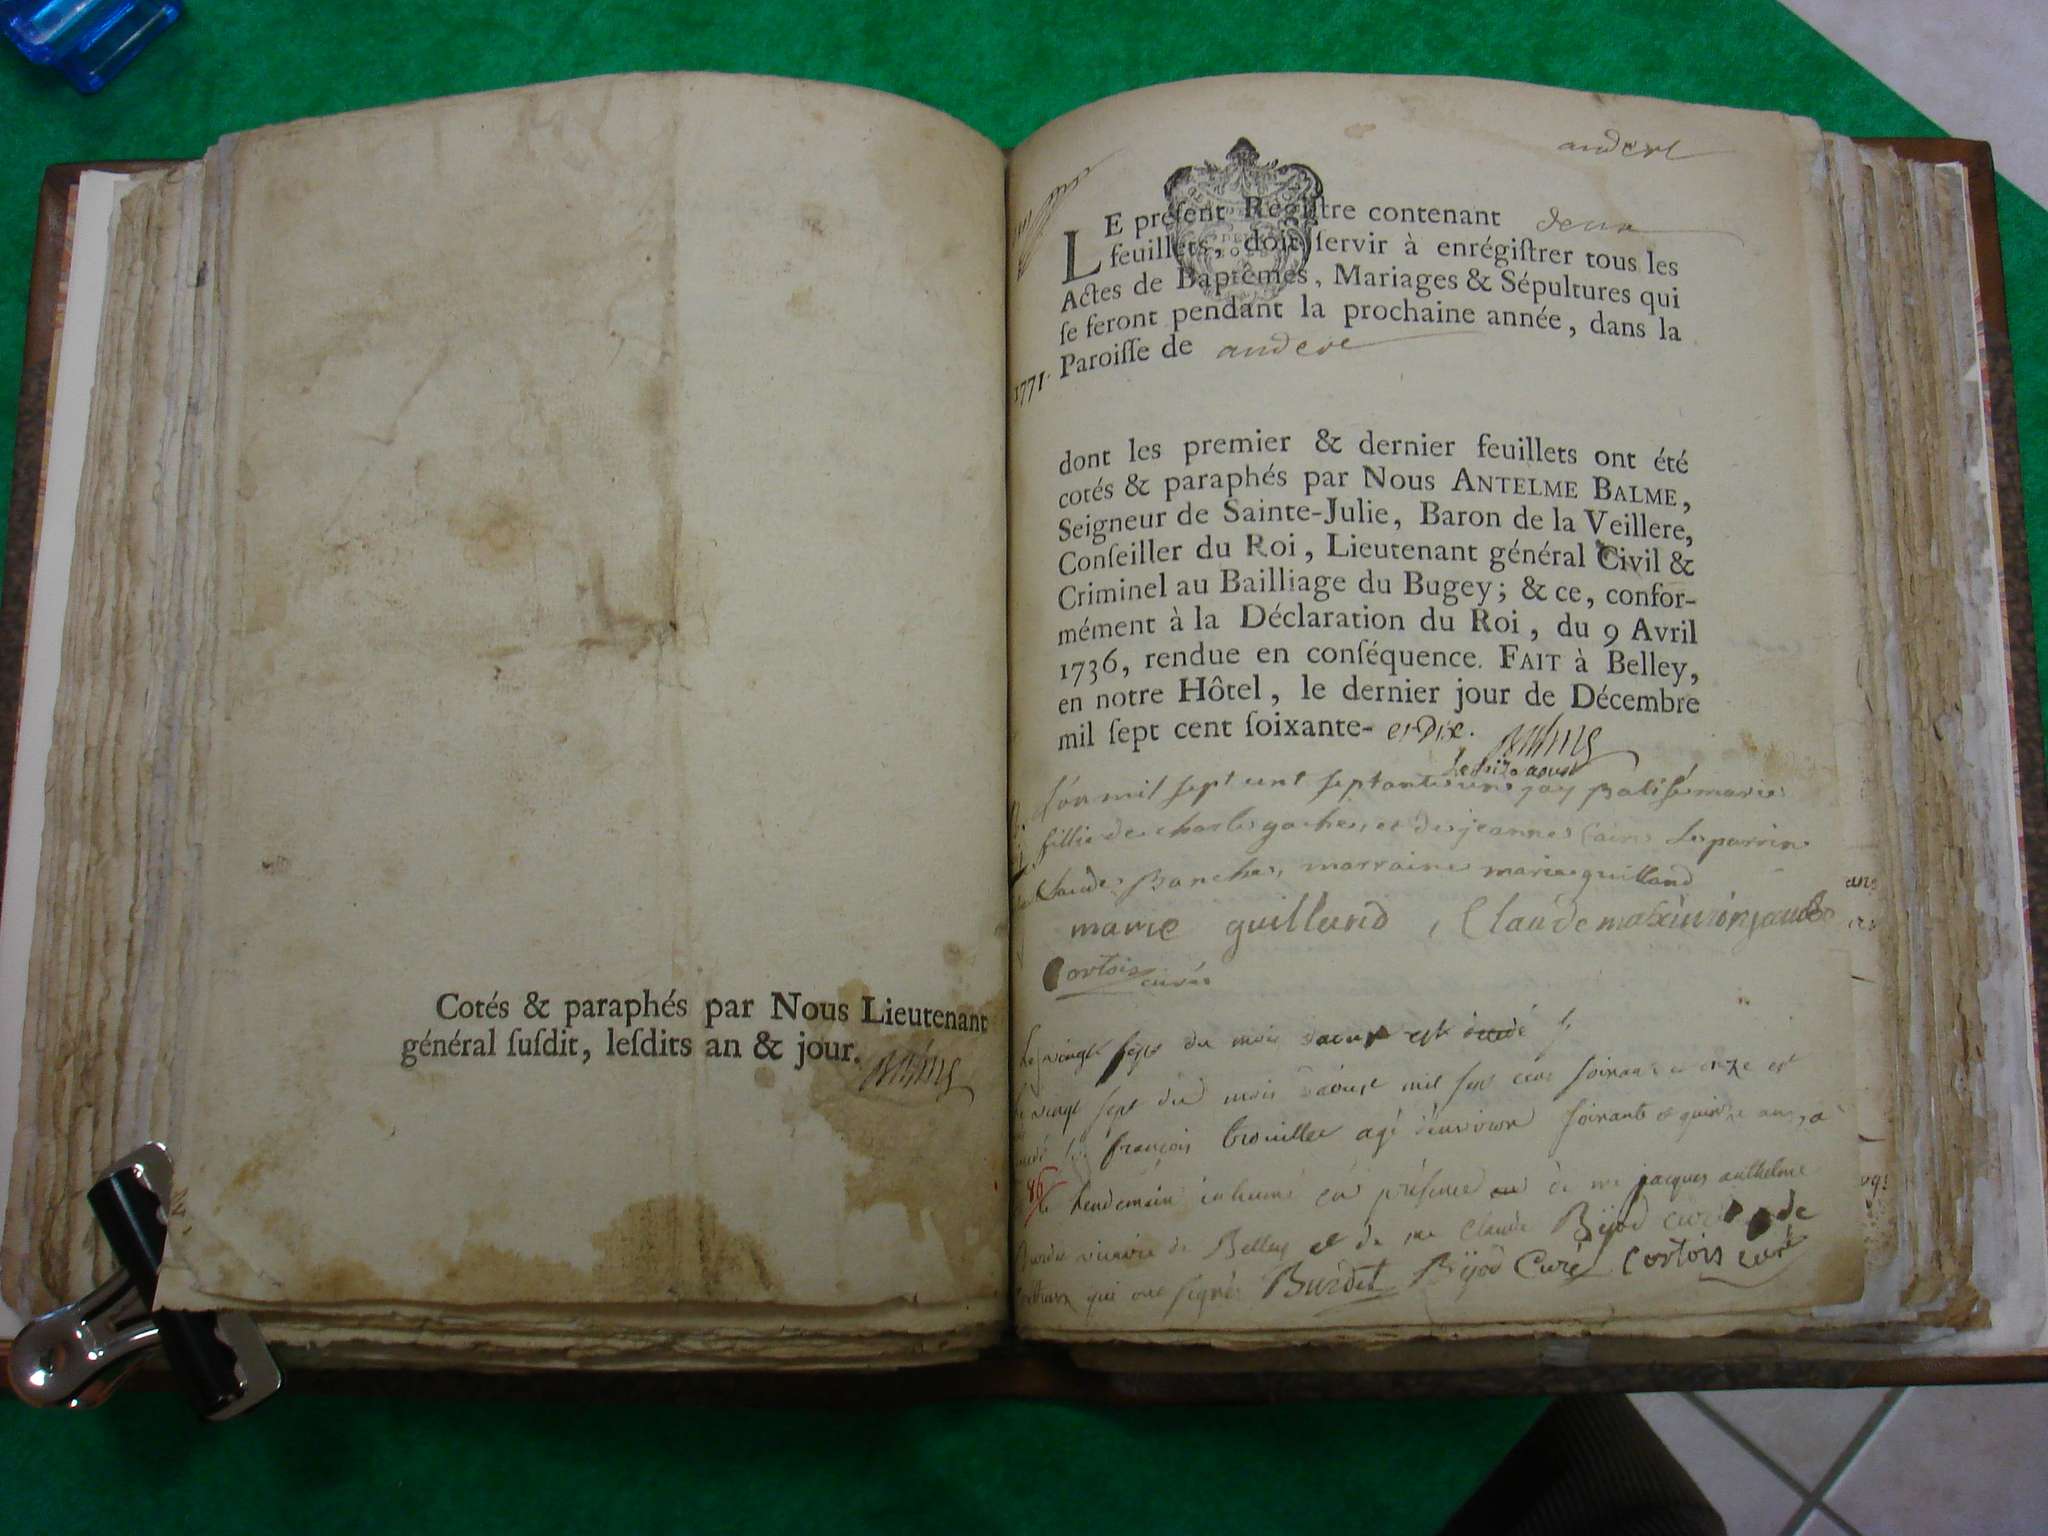 Cotés & paraphés par Nous Lieutenant
général ſuſdit, leſdits an & jour.
andert
LE préſent Regiſtre contenant deux
feuillets, doit ſervir à enrégiſtrer tous les
Actes de Baptêmes, Mariages & Sépultures qui
ſe feront pendant la prochaine année, dans la
Paroiſſe de andert
1771.
dont les premier & dernier feuillets ont été
cotés & paraphés par Nous ANTELME BALME,
Seigneur de Sainte-Julie, Baron de la Veillere,
Conſeiller du Roi, Lieutenant général Civil &
Criminel au Bailliage du Bugey; & ce, confor-
mément à la Déclaration du Roi, du 9 Avril
1736, rendue en conſéquence. FAIT à Belley,
en notre Hôtel, le dernier jour de Décembre
mil ſept cent ſoixante- et Dix.
L'an mil sept cent septante un jay Batisé marie
fillie de charle gache et de jeanne le parrin
Claude marraine marie guilland
marie guilland, Claude
Cortois curé
Le vingt sept du mois daoust est
le vingt sept du mois daoust mil sept cent soixante onze est
françois trouillet agé denviron soixante et quinze ans, a
lendemain inhumé en présence de mr jacques anthelme
vicaire de Belley et de mr Claude Bijod curé de
qui ont signé Burdet Bijod Curé Cortois curé